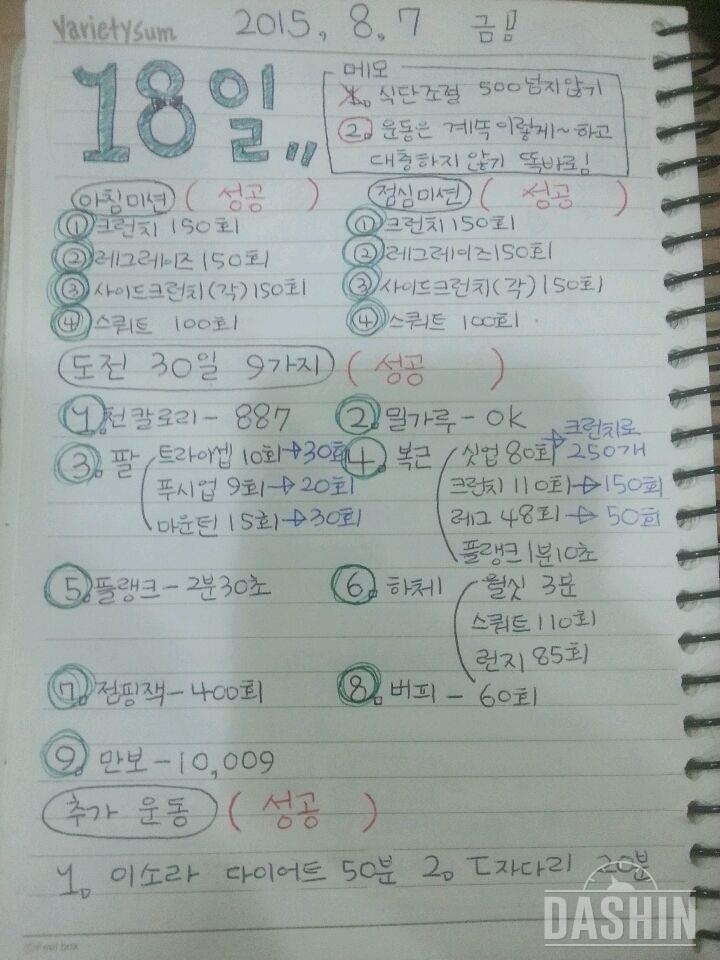 Varietysum 2015. 8. 7 금!!
18일,,
메모
1. 식단조절 500넘지않기
2. 운동은 계뚝이렇게~하고
대충하지 않기 똑바로!
아침미션 ( 성공 )
① 크런치 150회
② 레그레이즈 150회
③ 사이드크런치(각) 150회
④ 스쿼트 100회
점심미션 ( 성공 )
① 크런치 150회
② 레그레이즈 150회
③ 사이드크런치(각) 150회
④ 스쿼트 100회
도전 30일 9가지 ( 성공 )
1. 천칼로리 - 887
2. 밀가루 - OK
3. 팔 트라이셉 10회→30회
푸시업 9회→20회
마운턴 15회→30회
4. 복근 싯업 80회→크런치로 250개
크런치 110회→150회
레그 48회→50회
플랭크 1분10초
5. 플랭크 - 2분30초
6. 하체 월싯 3분
스쿼트 110회
런지 85회
7. 점핑잭 - 400회
8. 버피 - 60회
9. 만보 - 10,009
추가 운동 ( 성공 )
1. 이소라 다이어트 50분 2. T자다리 20분
DASHIN